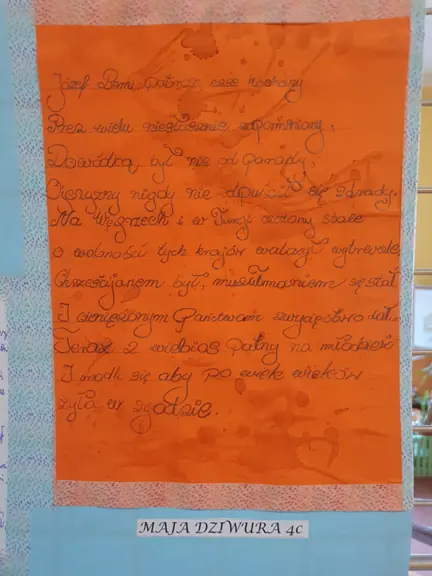 Józef Bem, patron nasz kochany
Przez wielu niesłusznie zapomniany,
Dowódcą był nie od parady,
Ojczyzny nigdy nie dopuścił się zdrady.
Na Węgrzech i w Turcji czczony stale
o wolność tych krajów walczył wytrwale.
Chrześcijanem był, muzułmaninem się stał
I ciemiężonym Państwom zwycięstwo dał.
Teraz z niebios patrzy na młodzież
I modli się aby po wiek wieków
żyła w zgodzie.
MAJA DZIWURA 4c